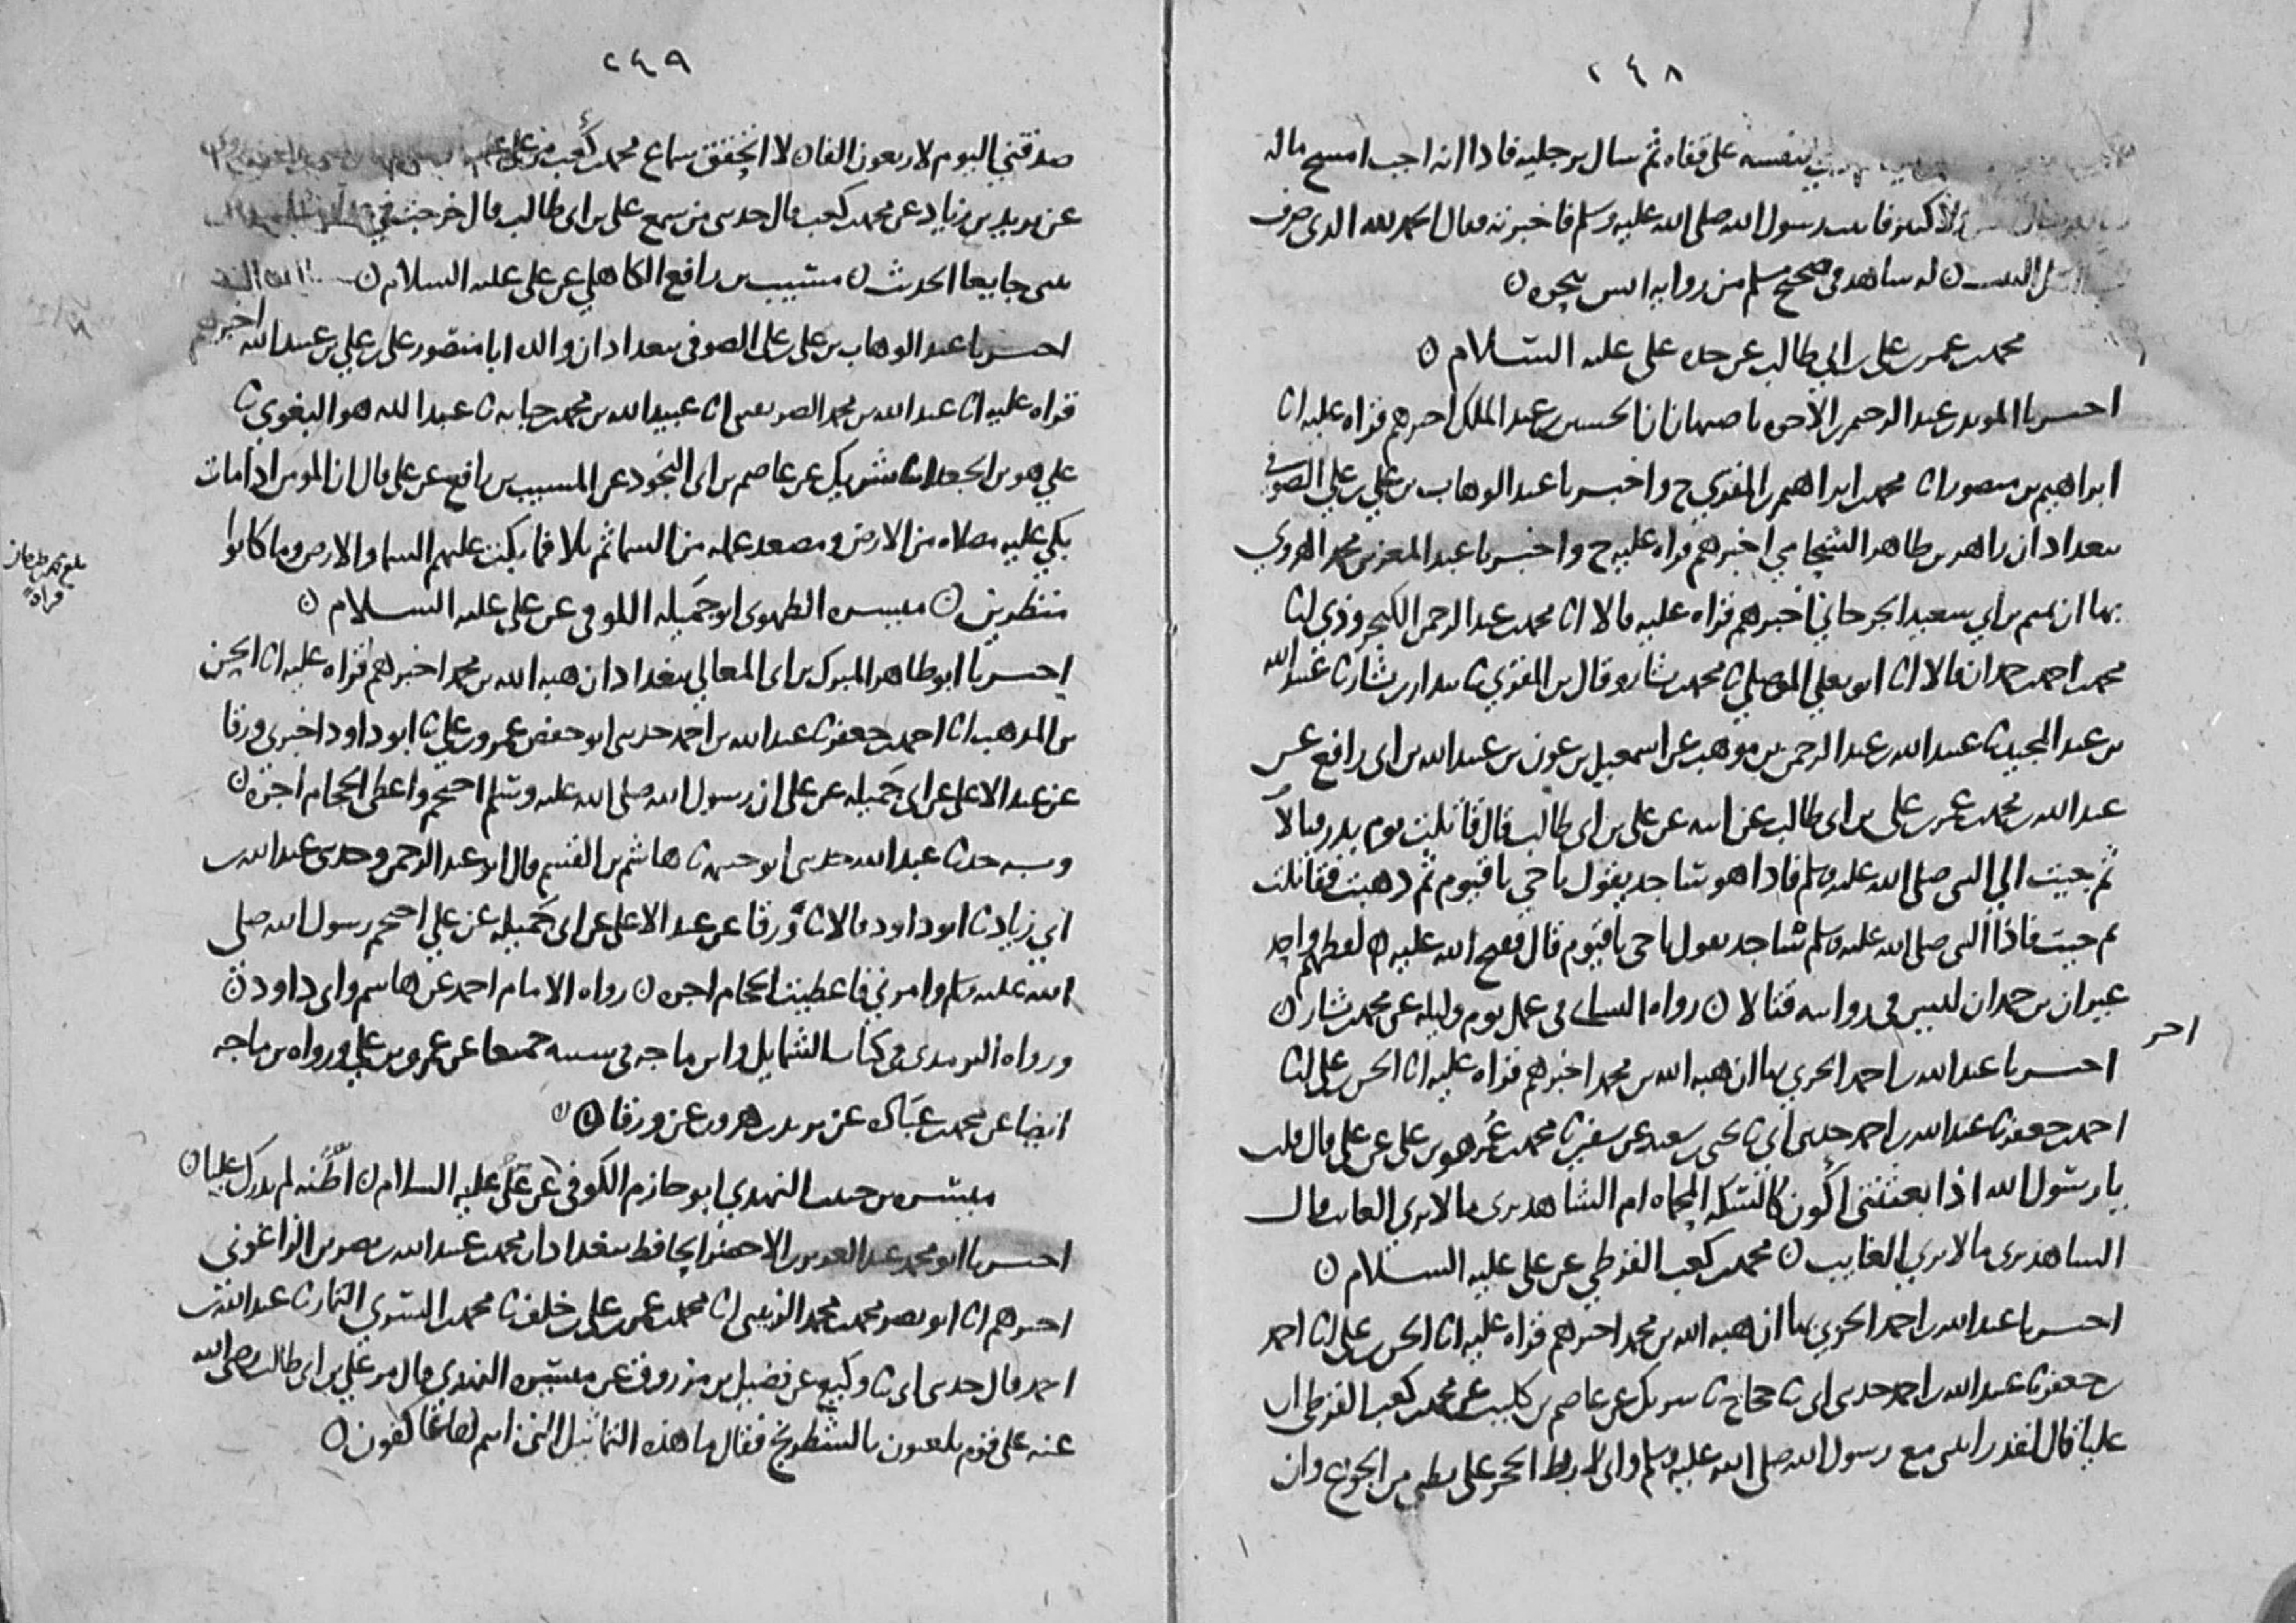 ٢٤٨
بنفسه على قفاه ثم سال برجليه فاذا انه اجب امسح ماله
فاتيت رسول الله صلى الله عليه وسلم فاخبرته فقال الحمد لله الذي صرف
له شاهد في صحيح مسلم من رواية انس بنحوه ن
محمد بن عمر بن علي بن ابي طالب عن جده علي عليه السلام ن
اخبرنا المويد بن عبد الرحيم بن الاخوه باصبهان ان الحسين بن عبد الملك اخبرهم قراه عليه انا
ابراهيم بن منصور انا محمد بن ابراهيم بن المقري ح واخبرنا عبد الوهاب بن علي بن علي الصوفي
ببغداد ان زاهر بن طاهر الشحامي اخبرهم قراه عليه ح واخبرنا عبد المعز بن محمد الهروي
بها ان تميم بن ابي سعيد الجرجاني اخبرهم قراه عليه قالا انا محمد بن عبد الرحمن الكنجروذي انا
محمد بن احمد بن حمدان قالا انا ابو يعلي الموصلي ثا محمد بن بشار وقال بن المقري ثا بندار بن بشار ثا عبيد الله
بن عبد المجيد ثا عبيد الله بن عبد الرحمن بن موهب عن اسمعيل بن عون بن عبيد الله بن ابي رافع عن
عبد الله بن محمد بن عمر بن علي بن ابي طالب عن ابيه عن علي بن ابي طالب قال قاتلت يوم بدر قتالا
ثم جيت الي النبي صلى الله عليه وسلم فاذا هو ساجد يقول يا حي يا قيوم ثم ذهبت فقاتلت
ثم جيت فاذا النبي صلى الله عليه وسلم ساجد يقول يا حي يا قيوم قال ففتح الله عليه ن لفظهم واحد
غير ان بن حمدان ليس في روايته قتالا ن رواه النسائي في عمل يوم وليله عن محمد بن بشار ن
اخر
اخبرنا عبد الله بن احمد الحربي بها ان هبه الله بن محمد اخبرهم قراه عليه انا الحسن بن علي انا
احمد بن جعفر ثا عبد الله بن احمد حدثني ابي ثا يحيى بن سعيد عن سفين ثا محمد بن عمر هو بن علي عن علي قال قلت
يا رسول الله اذا بعثتني اكون كالسكه المحماه ام الشاهد يرى ما لا يرى الغايب قال
الشاهد يرى ما لا يري الغايب ن محمد بن كعب القرظي عن علي عليه السلام ن
اخبرنا عبد الله بن احمد الحربي بها ان هبه الله بن محمد اخبرهم قراه عليه انا الحسن بن علي انا احمد
بن جعفر ثا عبد الله بن احمد حدثني ابي ثا حجاج ثا شريك عن عاصم بن كليب عن محمد بن كعب القرظي ان
عليا قال لقد رايتني مع رسول الله صلى الله عليه وسلم واني لاربط الحجر على بطني من الجوع وان
٢٤٩
صدقتي اليوم لاربعون الفا ن لا اتحقق سماع محمد بن كعب من علي
عن يزيد بن زياد عن محمد بن كعب قال حدثني من سمع علي بن ابي طالب قال خرجت في
جايعا الحديث ن مسيب بن رافع الكاهلي عن علي عليه السلام ن
اخبرنا عبد الوهاب بن علي بن علي الصوفي ببغداد ان والده ابا منصور علي بن علي بن عبيد الله اخبرهم
قراه عليه انا عبد الله بن محمد الصريفيني انا عبيد الله بن محمد بن حبابه ثا عبد الله هو البغوي ثا
علي هو بن الجعد انا شريك عن عاصم بن ابي النجود عن المسيب بن رافع عن علي قال ان المومن اذا مات
بكي عليه مصلاه من الارض ومصعد عمله من السما ثم تلا فما بكت عليهم السما والارض وما كانوا
منظرين ن ميسره الطهوي ابو جميله الكوفي عن علي عليه السلام ن
اخبرنا ابو طاهر المبرك بن ابي المعالي ببغداد ان هبه الله بن محمد اخبرهم قراه عليه انا الحسن
بن المذهب انا احمد بن جعفر ثا عبد الله بن احمد حدثني ابو حفص عمرو بن علي ثا ابو داود اخبرني ورقا
عن عبد الاعلى عن ابي جميله عن علي ان رسول الله صلى الله عليه وسلم احتجم واعطى الحجام اجره ن
وبه حدثنا عبد الله حدثني ابو خيثمه ثا هاشم بن القسم قال ابو عبد الرحمن وحدثني عبد الله بن
ابي زياد ثا ابو داود قالا ثا ورقا عن عبد الاعلى عن ابي جميله عن علي احتجم رسول الله صلى
الله عليه وسلم وامرني فاعطيت الحجام اجره ن رواه الامام احمد عن هاشم وابي داود ن
ورواه الترمذي في كتاب الشمايل وابن ماجه في سننه جميعا عن عمرو بن علي ورواه بن ماجه
ايضا عن محمد بن عباده عن يزيد بن هرون عن ورقا ن
ميسره بن حبيب النهدي ابو حازم الكوفي عن علي عليه السلام ن اظنه لم يدرك عليا ن
اخبرنا ابو محمد عبد العزيز بن الاخضر الحافظ ببغداد ان محمد بن عبيد الله بن نصر بن الزاغوني
اخبرهم انا ابو نصر محمد بن محمد الزينبي انا محمد بن عمر بن علي بن خلف ثا محمد بن السري التمار ثا عبد الله بن
احمد قال حدثني ابي ثا وكيع عن فضيل بن مرزوق عن ميسره النهدي قال مر علي بن ابي طالب رضي الله
عنه على قوم يلعبون بالشطرنج فقال ما هذه التماثيل التي انتم لها عاكفون ن